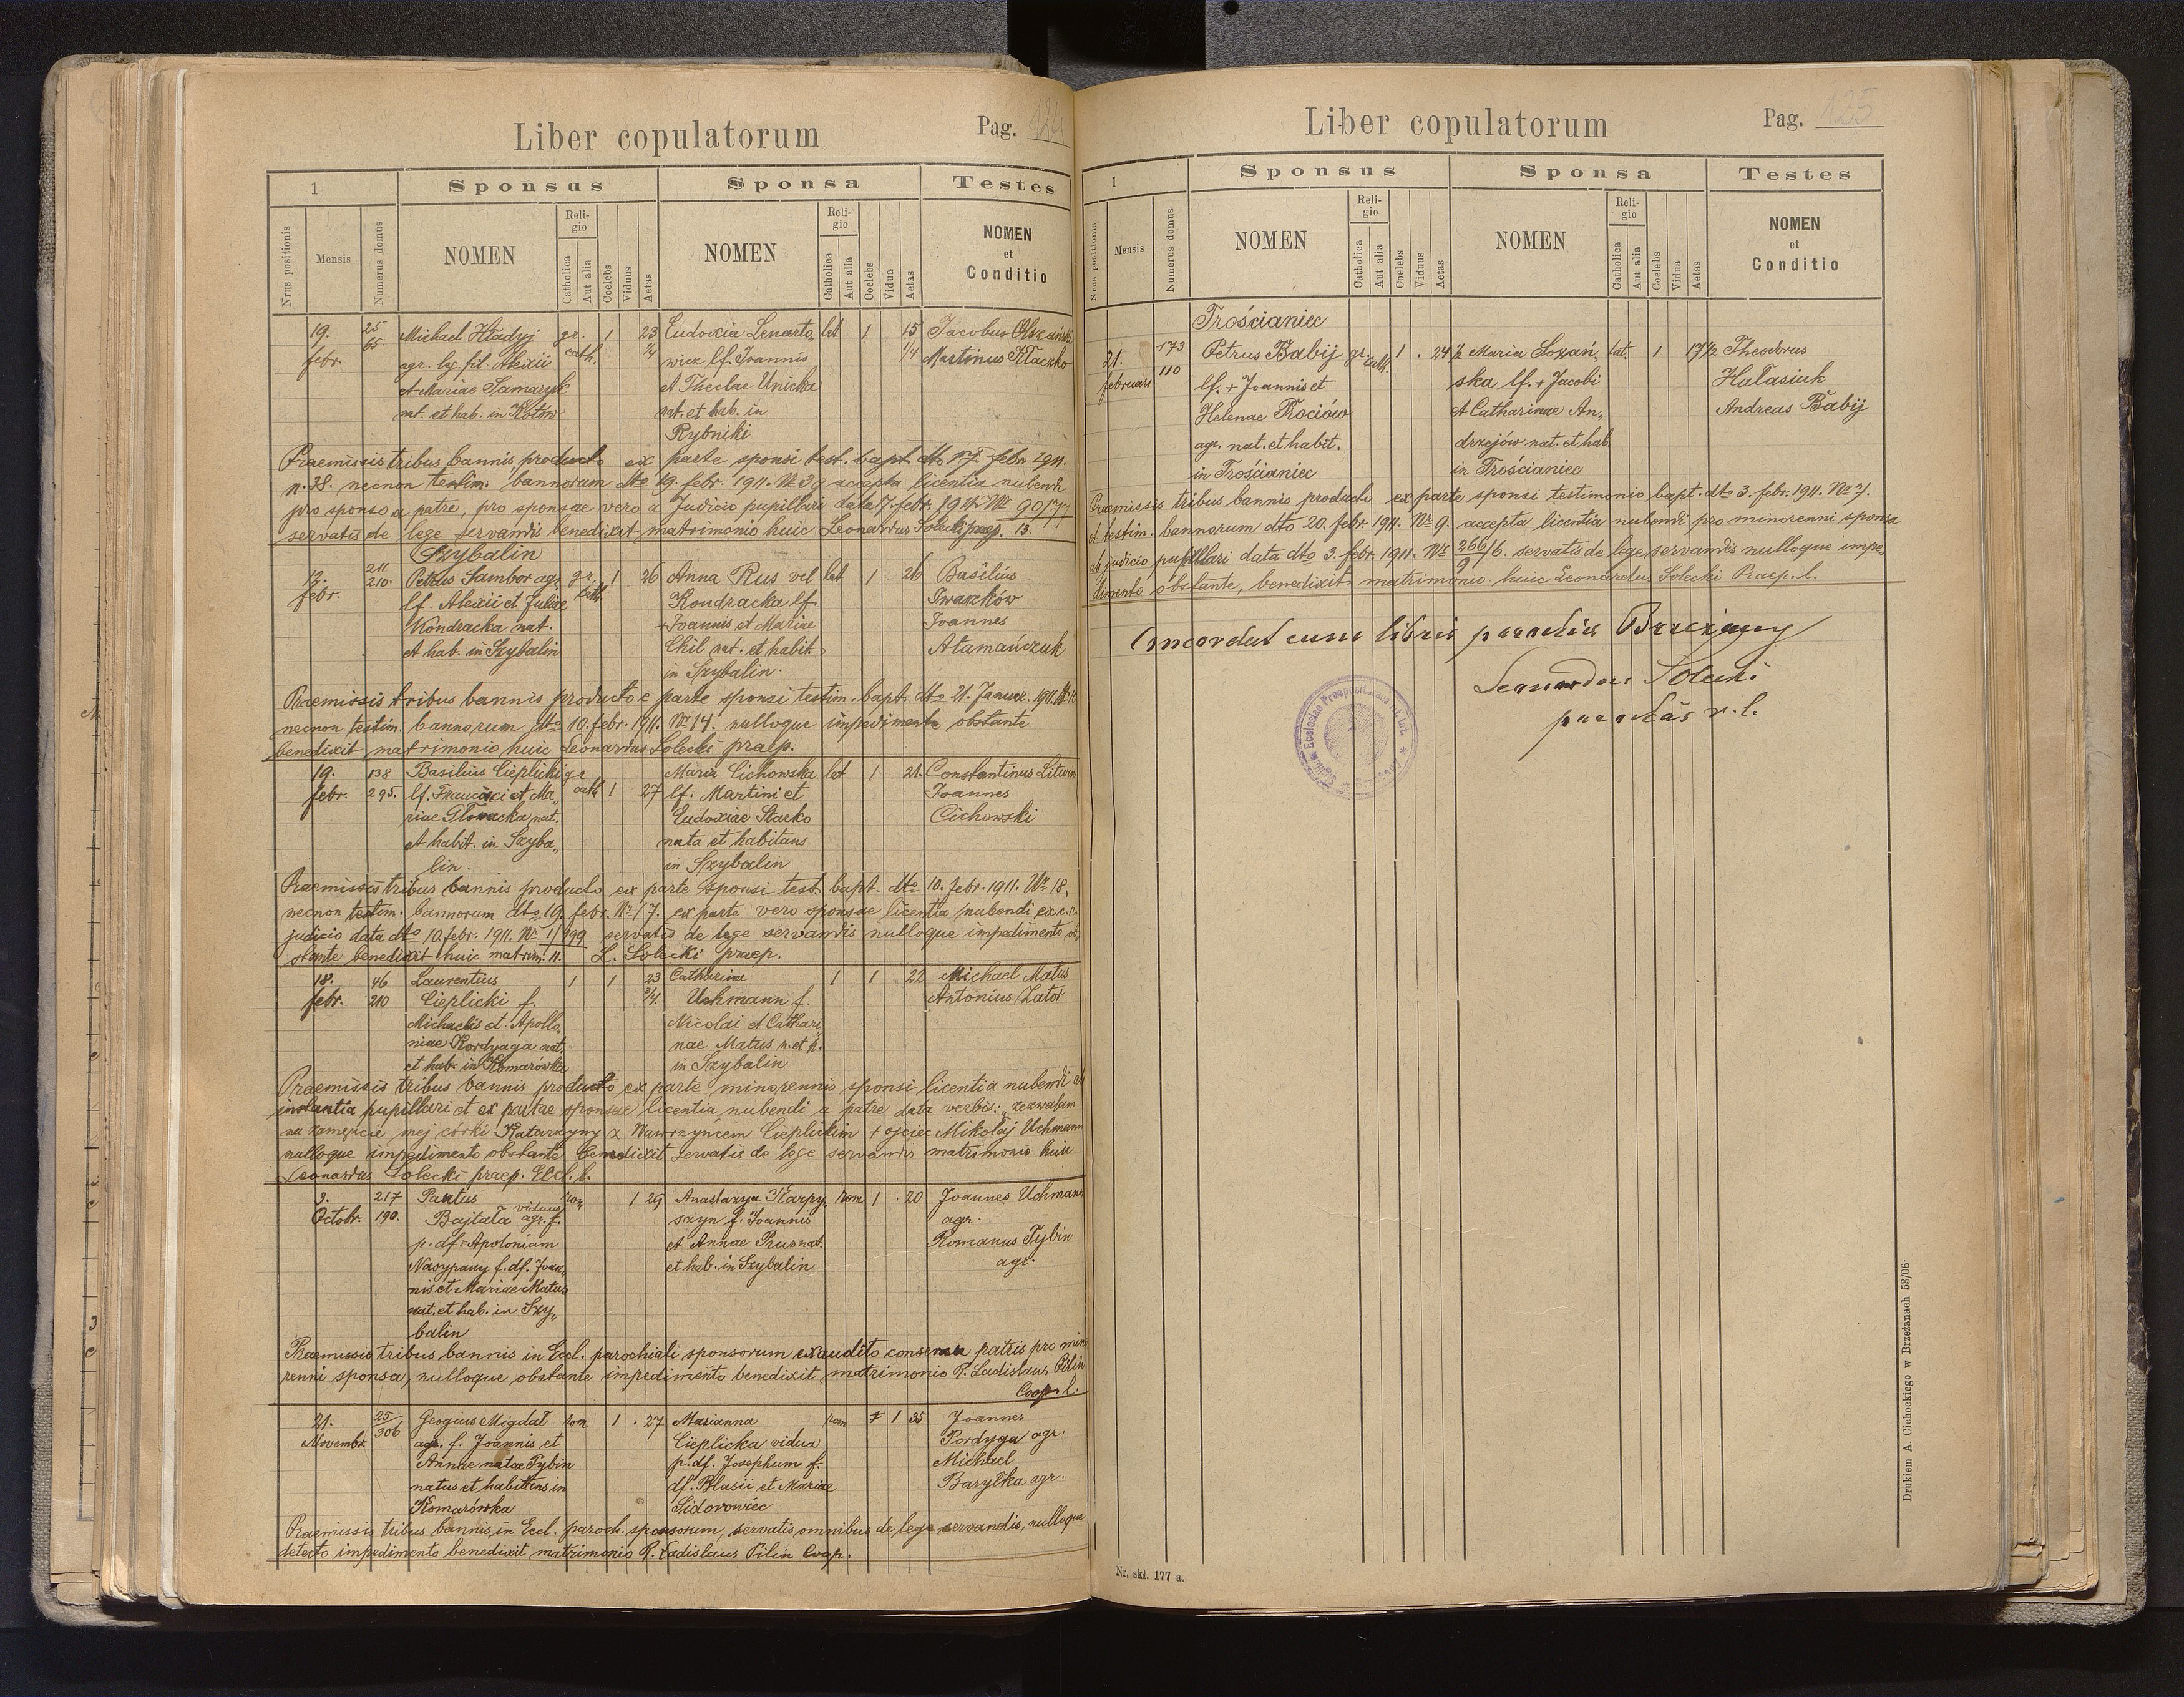 Liber copulatorum
Pag. 124
1
Sponsus
Sponsa
Testes
Nrus positionis
Mensis
Numerus domus
NOMEN
Religio
Catholica
Aut alia
Coelebs
Viduus
Aetas
NOMEN
Religio
Catholica
Aut alia
Coelebs
Vidua
Aetas
NOMEN
et
Conditio
19. febr.
25
65
Michael Hładyj
agr. lg. fil. Alexii
et Mariae Samaryk
nat. et hab. in Kotów
gr. cath.
1
23 1/4
Eudoxia Lenarto„
wicz lf. Joannis
et Theclae Unicka
nat. et hab. in
Rybniki
lat
1
15 1/4
Jacobus Olszański
Martinus Kłaczko
Praemissis tribus bannis producto ex parte sponsi test. bapt. dto 17. febr. 1911.
n. 38. necnon testim. bannorum dto 19. febr. 1911. Nr. 39 accepta licentia nubendi
pro sponso a patre, pro sponsae vero a Judicio pupillari data 17. febr. 1911. Nr
servatis de lege servandis benedixit matrimonio huic Leonardus Solecki praep.
Szybalin
12. febr.
211
210.
Petrus Sambor agr.
lf. Alexii et Juliae
Kondracka nat.
et hab. in Szybalin
gr. cath.
1
26
Anna Rus vel
Kondracka lf.
+Joannis et Mariae
Chil nat. et habit
in Szybalin.
lat
1
26
Basilius
Iwaszków
Joannes
Atamańczuk
Praemissis tribus bannis producto e parte sponsi testim. bapt. dto 21. Januar. 1911.
necnon testim. bannorum dto 10. febr. 1911. Nr 14. nulloque impedimento obstante
benedixit matrimonio huic Leonardus Solecki praep.
19. febr.
138
295.
Basilius Cieplicki
lf. Francisci et Ma„
riae Głowacka nat.
et habit. in Szyba„
lin.
gr cath
1
27
Maria Cichowska
lf. Martini et
Eudoxiae Starko
nata et habitans
in Szybalin
lat
1
21.
Constantinus Litwin
Joannes
Cichowski
Praemissis tribus bannis producto ex parte sponsi test. bapt. dto 10. febr. 1911. Nr 18,
necnon testim. bannorum dto 19. febr. Nr 17. ex parte vero sponsae licentia nubendi ex c. r.
judicio data dto 10 febr. 1911. Nr servatis de lege servandis nulloque impedimento ob„
stante benedixit huic matrim. L. Solecki praep.
18. febr.
46
210
Laurentius
Cieplicki f.
Michaelis et Apollo„
niae Kordyaga nat.
et hab. in Komarówka
1
1
23 3/4
Catharina
Uchmann f.
Nicolai et Cathari„
nae Matus n. et h.
in Szybalin
1
1
22
Michael Matus
Antonius Zator
Praemissis tribus bannis producto ex parte minorennis sponsi licentia nubendi
instantia pupillari et ex partae sponsae licentia nubendi a patre data verbis: „zezwalam
na zamęście mej córki Katarzyny z Wawrzyńcem Cieplickim + ojciec Mikołaj Uchmann
nulloque impedimento obstante benedixit servatis de lege servandis matrimonio huic
Leonardus Solecki praep. Eccl. l.
3. Octobr.
217
190.
Pantus
Bajtała viduus agr. f.
p. df. Apoloniam
Nasypany f. df. Joan„
nis et Mariae Matus
nat. et hab. in Szy„
balin
rom
1
29
Anastazya Karpy„
szyn f. Joannis
et Annae Prus nat.
et hab. in Szybalin
rom
1
20
Joannes Uchmann
agr.
Romanus Tybin
agr.
Praemissis tribus bannis in Eccl. parochiali sponsorum exaudito consensu patris pro mino
renni sponsa, nulloque obstante impedimento benedixit matrimonio R. Ladislaus Pilin
Coop. l.
21. Novembr.
25
306
Geogius Migdał
agr. f. Joannis et
Annae natae Tybin
natus et habitans in
Komarówka
rom
1
27
Marianna
Cieplicka vidua
p. df. Josephum f.
df. Blasii et Mariae
Sidorowiec
rom
1
35
Joannes
Pordyga agr.
Michael
Baryłka agr.
Praemissis tribus bannis in Eccl. paroch. sponsorum, servatis omnibus de lege servandis, nulloque
detecto impedimento benedixit matrimonio R. Ladislaus Pilin Coop.
Liber copulatorum
Pag. 125
1
Sponsus
Sponsa
Testes
Nrus positionis
Mensis
Numerus domus
NOMEN
Religio
Catholica
Aut alia
Coelebs
Viduus
Aetas
NOMEN
Religio
Catholica
Aut alia
Coelebs
Vidua
Aetas
NOMEN
et
Conditio
Trościaniec
21. februari
173
110
Petrus Babij
lf. + Joannis et
Helenae Kociów
agr. nat. et habit.
in Trościaniec
gr. cath.
1
24 1/2
Maria Łozań„
ska lf. + Jacobi
et Catharinae An„
drzejów nat. et hab
in Trościaniec
lat.
1
17 1/2
Theodorus
Hałasiuk
Andreas Babij
Praemissis tribus bannis producto ex parte sponsi testimonio bapt. dto 3. febr. 1911. No 7.
et testim. bannorum dto 20. febr. 1911. Nr 9. accepta licentia nubendi pro minorenni sponsa
ab judicio pupillari data dto 3. febr. 1911. Nr 266/6. 9 servatis de lege servandis nulloque impe„
dimento obstante, benedixit matrimonio huic Leonardus Solecki Praep. l.
Concordat cum libris parochiae Brzeżany
Leonardus Solecki
parochus r. l.
Sigillum Ecclesiae Praepositurae rit. lat. * Brzeżany *
Nr. skł. 177 a.
Drukiem A. Cichockiego w Brzeżanach 53/06